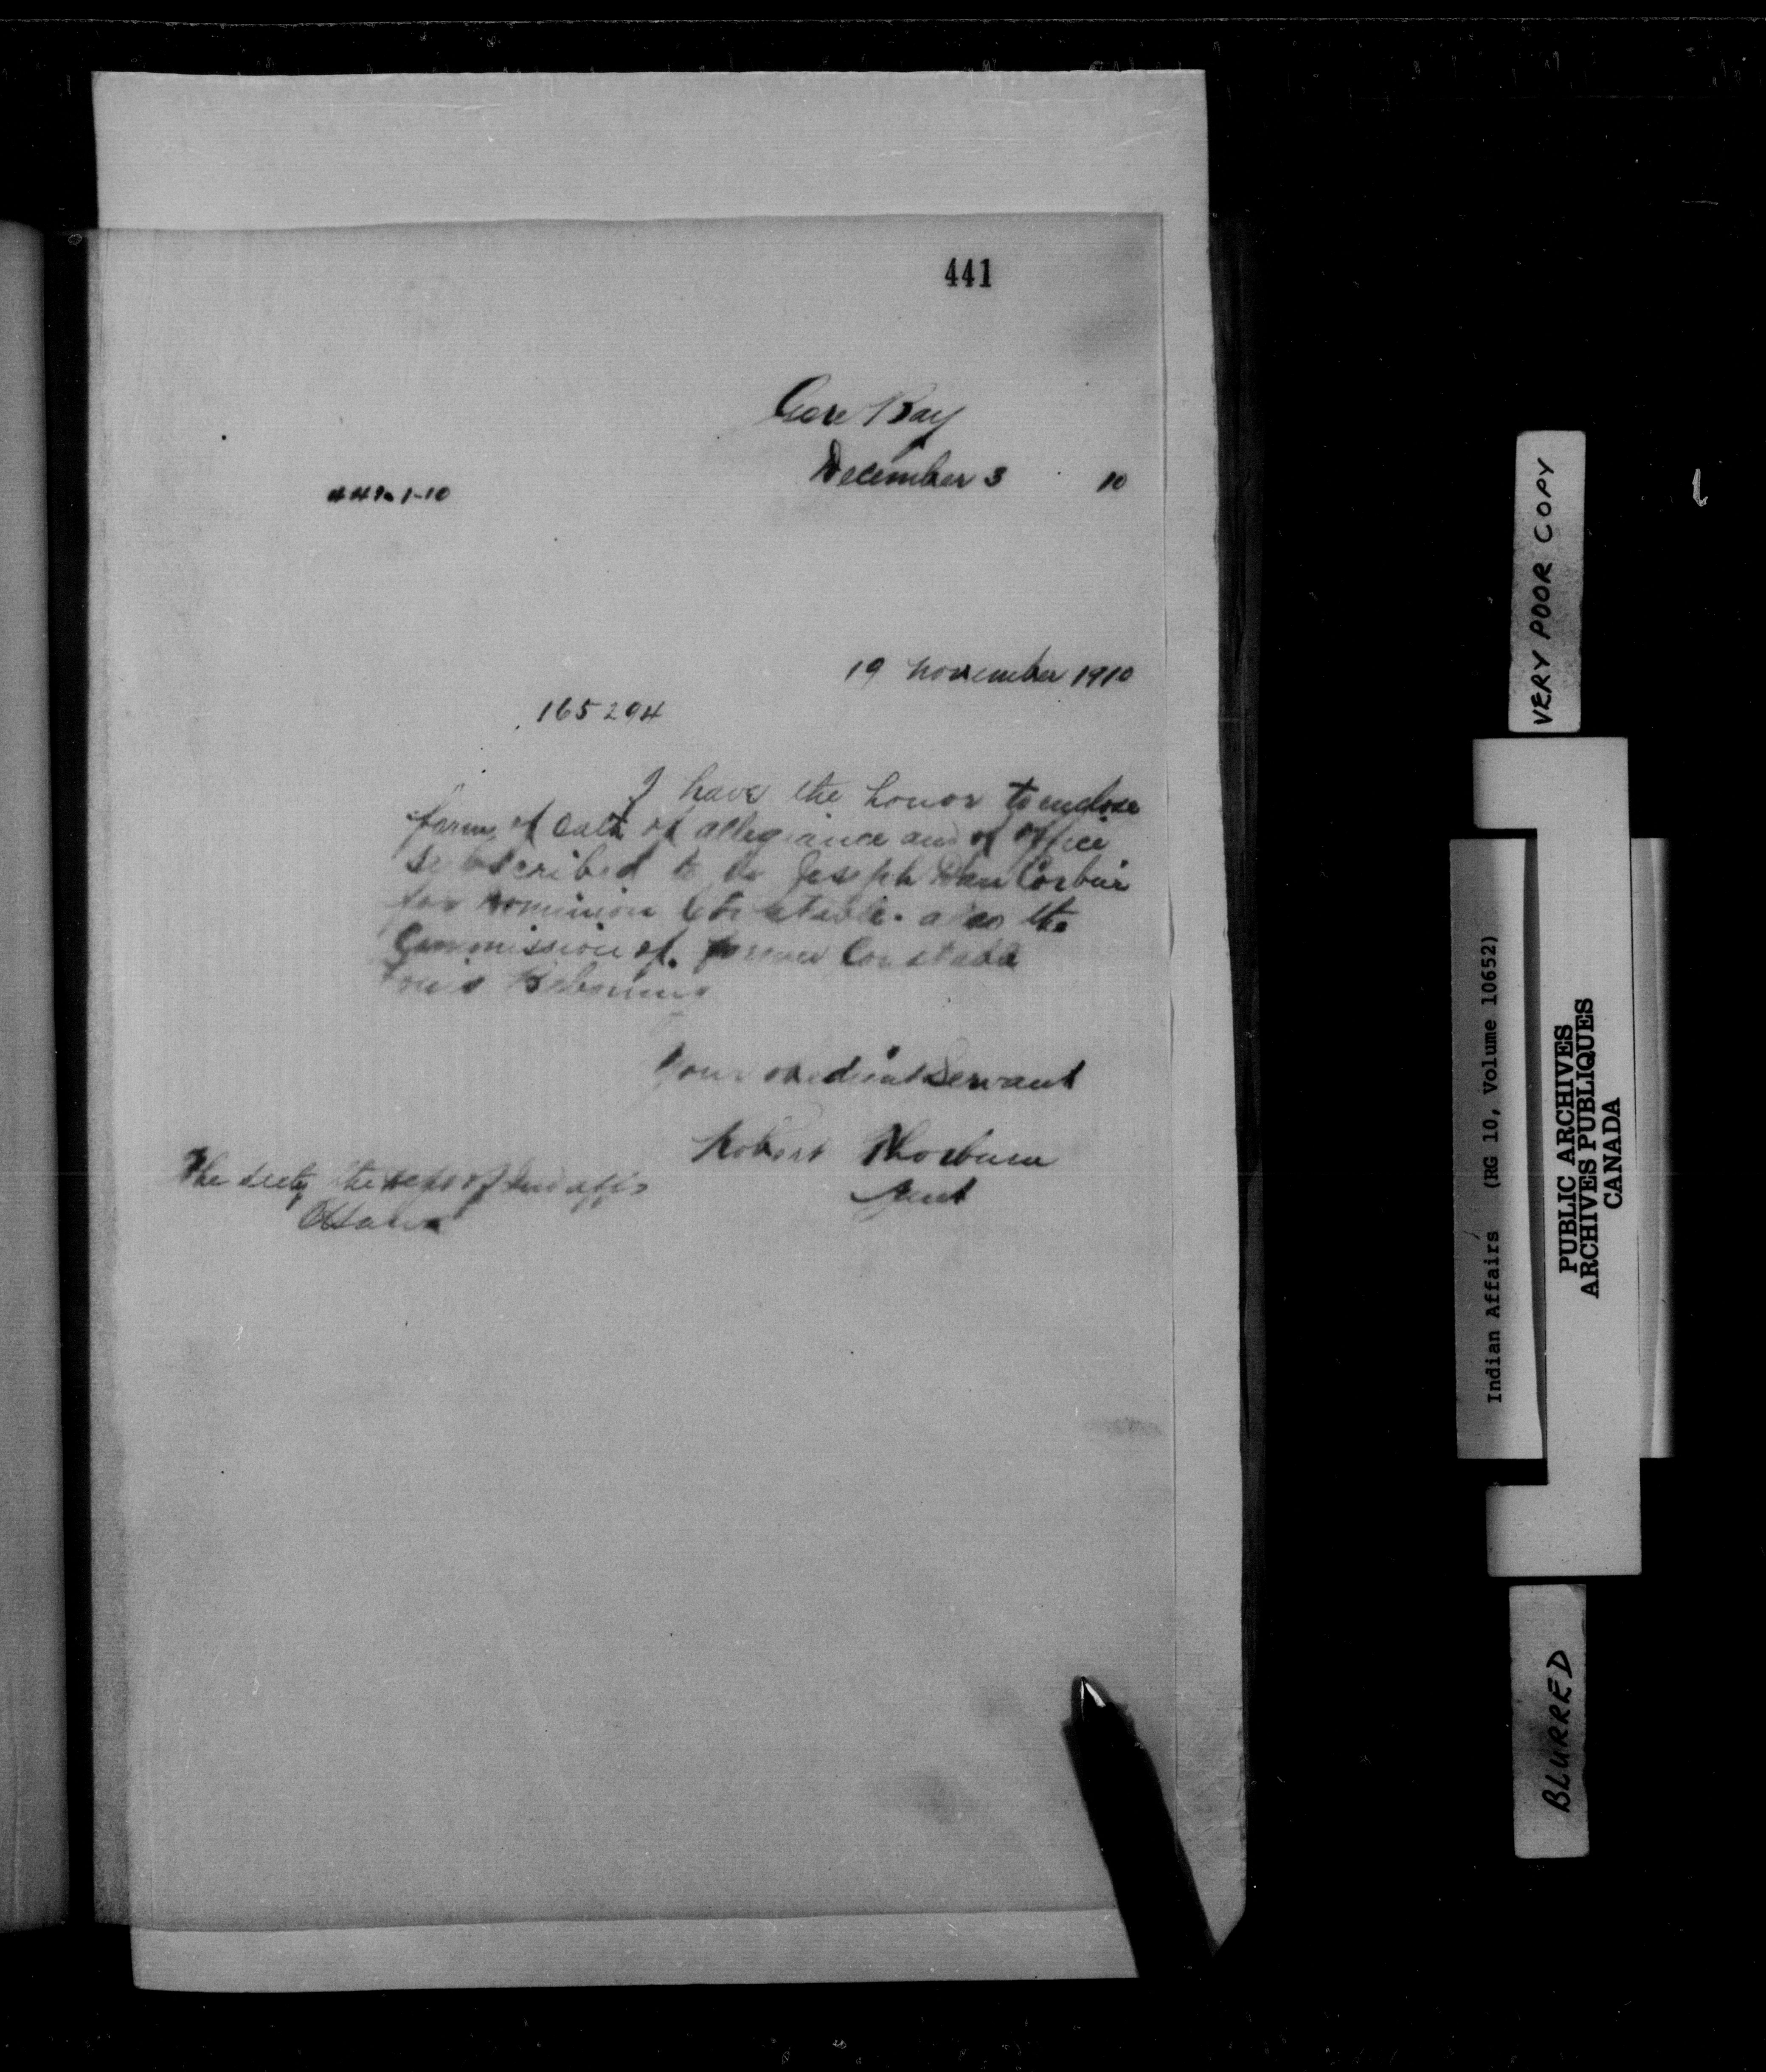 441
Gore Bay
December 3 10
1-10
19 November 1910
165294
I have the honor to enclose
form of oath of allegiance and of office
subscribed to by Joseph Dan Corbier
for Dominion Constable. also the
Commission of. former Constable
Louis
Your obedient Servant
Robert Thorburn
Agent
The Secty the Dept of Ind affs
Ottawa
VERY POOR COPY
Indian Affairs (RG 10, Volume 10652)
PUBLIC ARCHIVES
ARCHIVES PUBLIQUES
CANADA
BLURRED